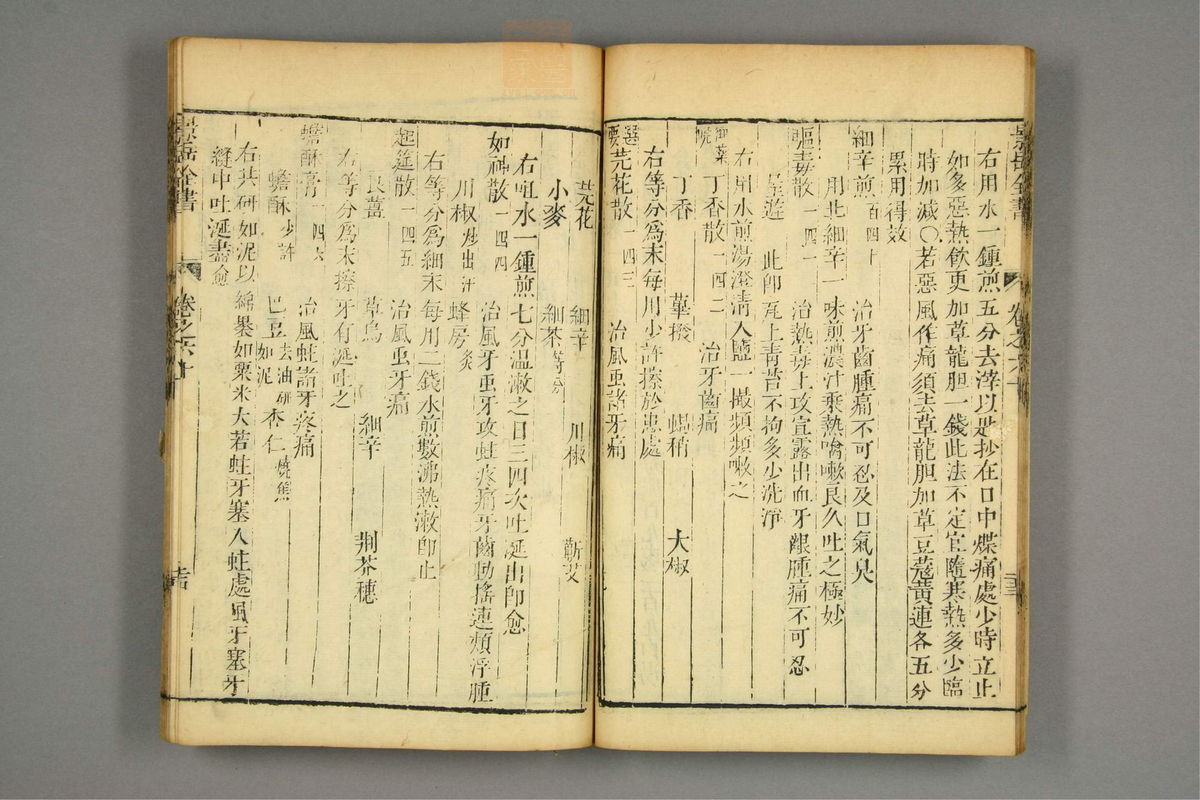 右用水一鍾煎五分去滓以匙抄在口中煠痛處少時立止
如多惡熱飲更加草龍胆一錢此法不定宜隨寒熱多少臨
時加減〇若惡風作痛須去草龍胆加草豆蔻黃連各五分
累用得效
細辛煎 百四十 治牙齒腫痛不可忍及口氣臭
用北細辛一味煎濃汁乘熱噙嗽良久吐之極妙
驅毒散 一四一 治熱毒上攻宣露出血牙齦腫痛不可忍
此即瓦上青苔不拘多少洗淨
右用水煎湯澄清入鹽一撮頻頻嗽之
御藥院丁香散 一四二 治牙齒痛
丁香 蓽撥 蝎稍 大椒
右等分為末每用少許擦於患處
選要芫花散 一四三 治風虫諸牙痛
芫花 細辛 川椒 蘄艾
小麥 細茶 等分
右㕮水一鍾煎七分温漱之日三四次吐涎出即愈
如神散 一四四 治風牙虫牙攻蛀疼痛牙齒動搖連頰浮腫
川椒 炒出汗 蜂房 炙
右等分為細末每用二錢水煎數沸熱漱即止
赴筵散 一四五 治風虫牙痛
良薑 草烏 細辛 荆芥穗
右等分為末擦牙有涎吐之
蟾酥膏 一四六 治風蛀諸牙疼痛
蟾酥 少許 巴豆 去油研如泥 杏仁 燒焦
右共研如泥以綿裹如粟米大若蛀牙塞入蛀處風牙塞牙
縫中吐涎盡愈
景岳全書
卷之六十
景岳全書
卷之六十